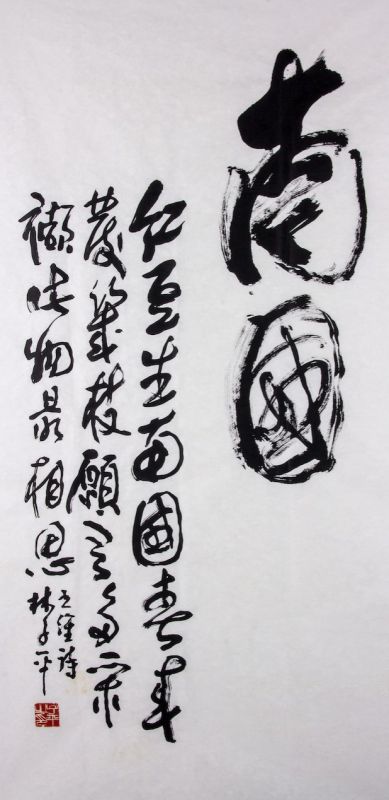 南國
紅豆生南國春来
發幾枝願君多采
襭此物最相思
王維詩
林子平